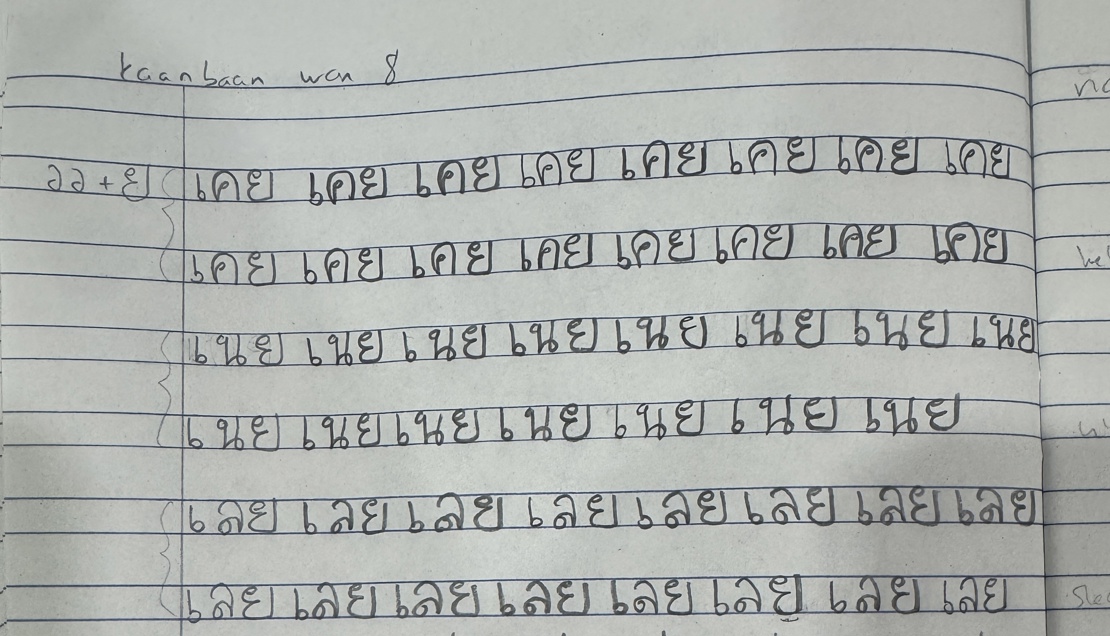 kaanbaan wan 8
əə + ย เคย เคย เคย เคย เคย เคย เคย เคย
เคย เคย เคย เคย เคย เคย เคย เคย
เนย เนย เนย เนย เนย เนย เนย เนย
เนย เนย เนย เนย เนย เนย เนย
เลย เลย เลย เลย เลย เลย เลย เลย
เลย เลย เลย เลย เลย เลย เลย เลย